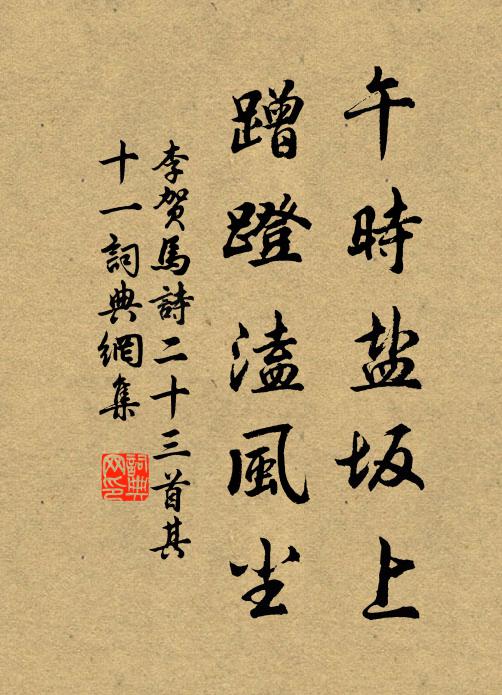 午時盐坂上
蹭蹬溘風尘
李贺馬詩二十三首其
十一詞典網集
詞典网印